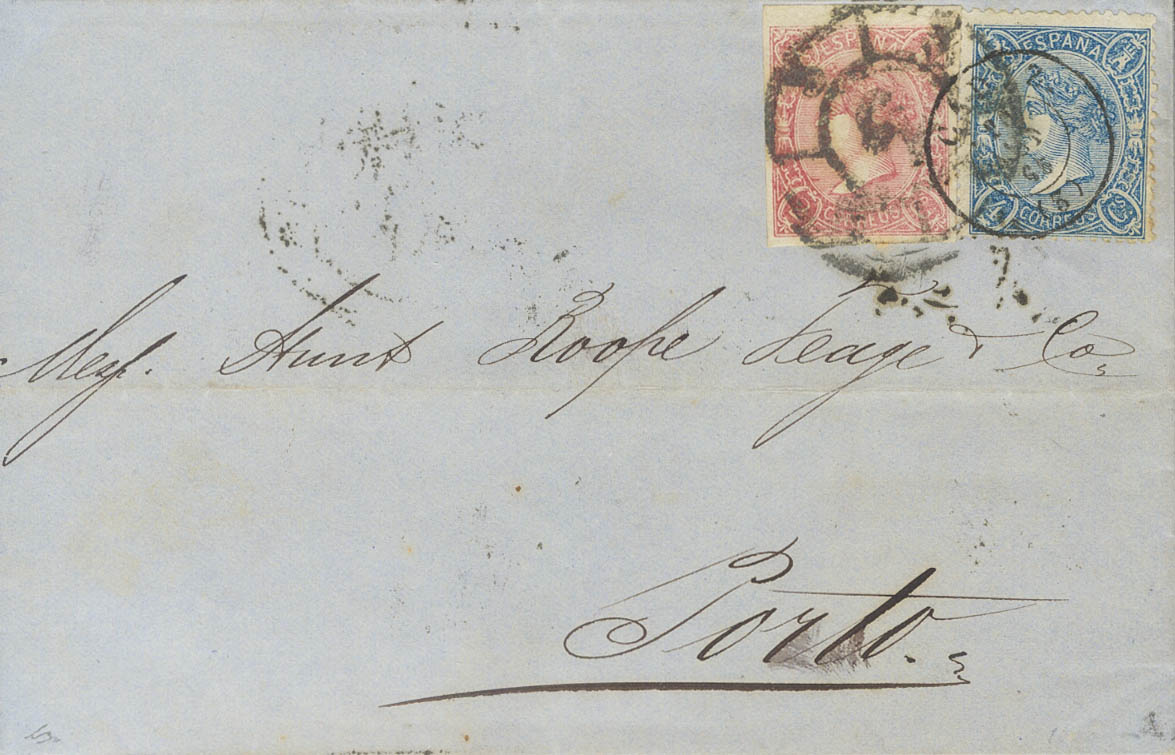 ESPAÑA
CORREOS
ESPAÑA
4 CORREOS Cs
Mess. Hunt Roope Teage & Co
Porto.